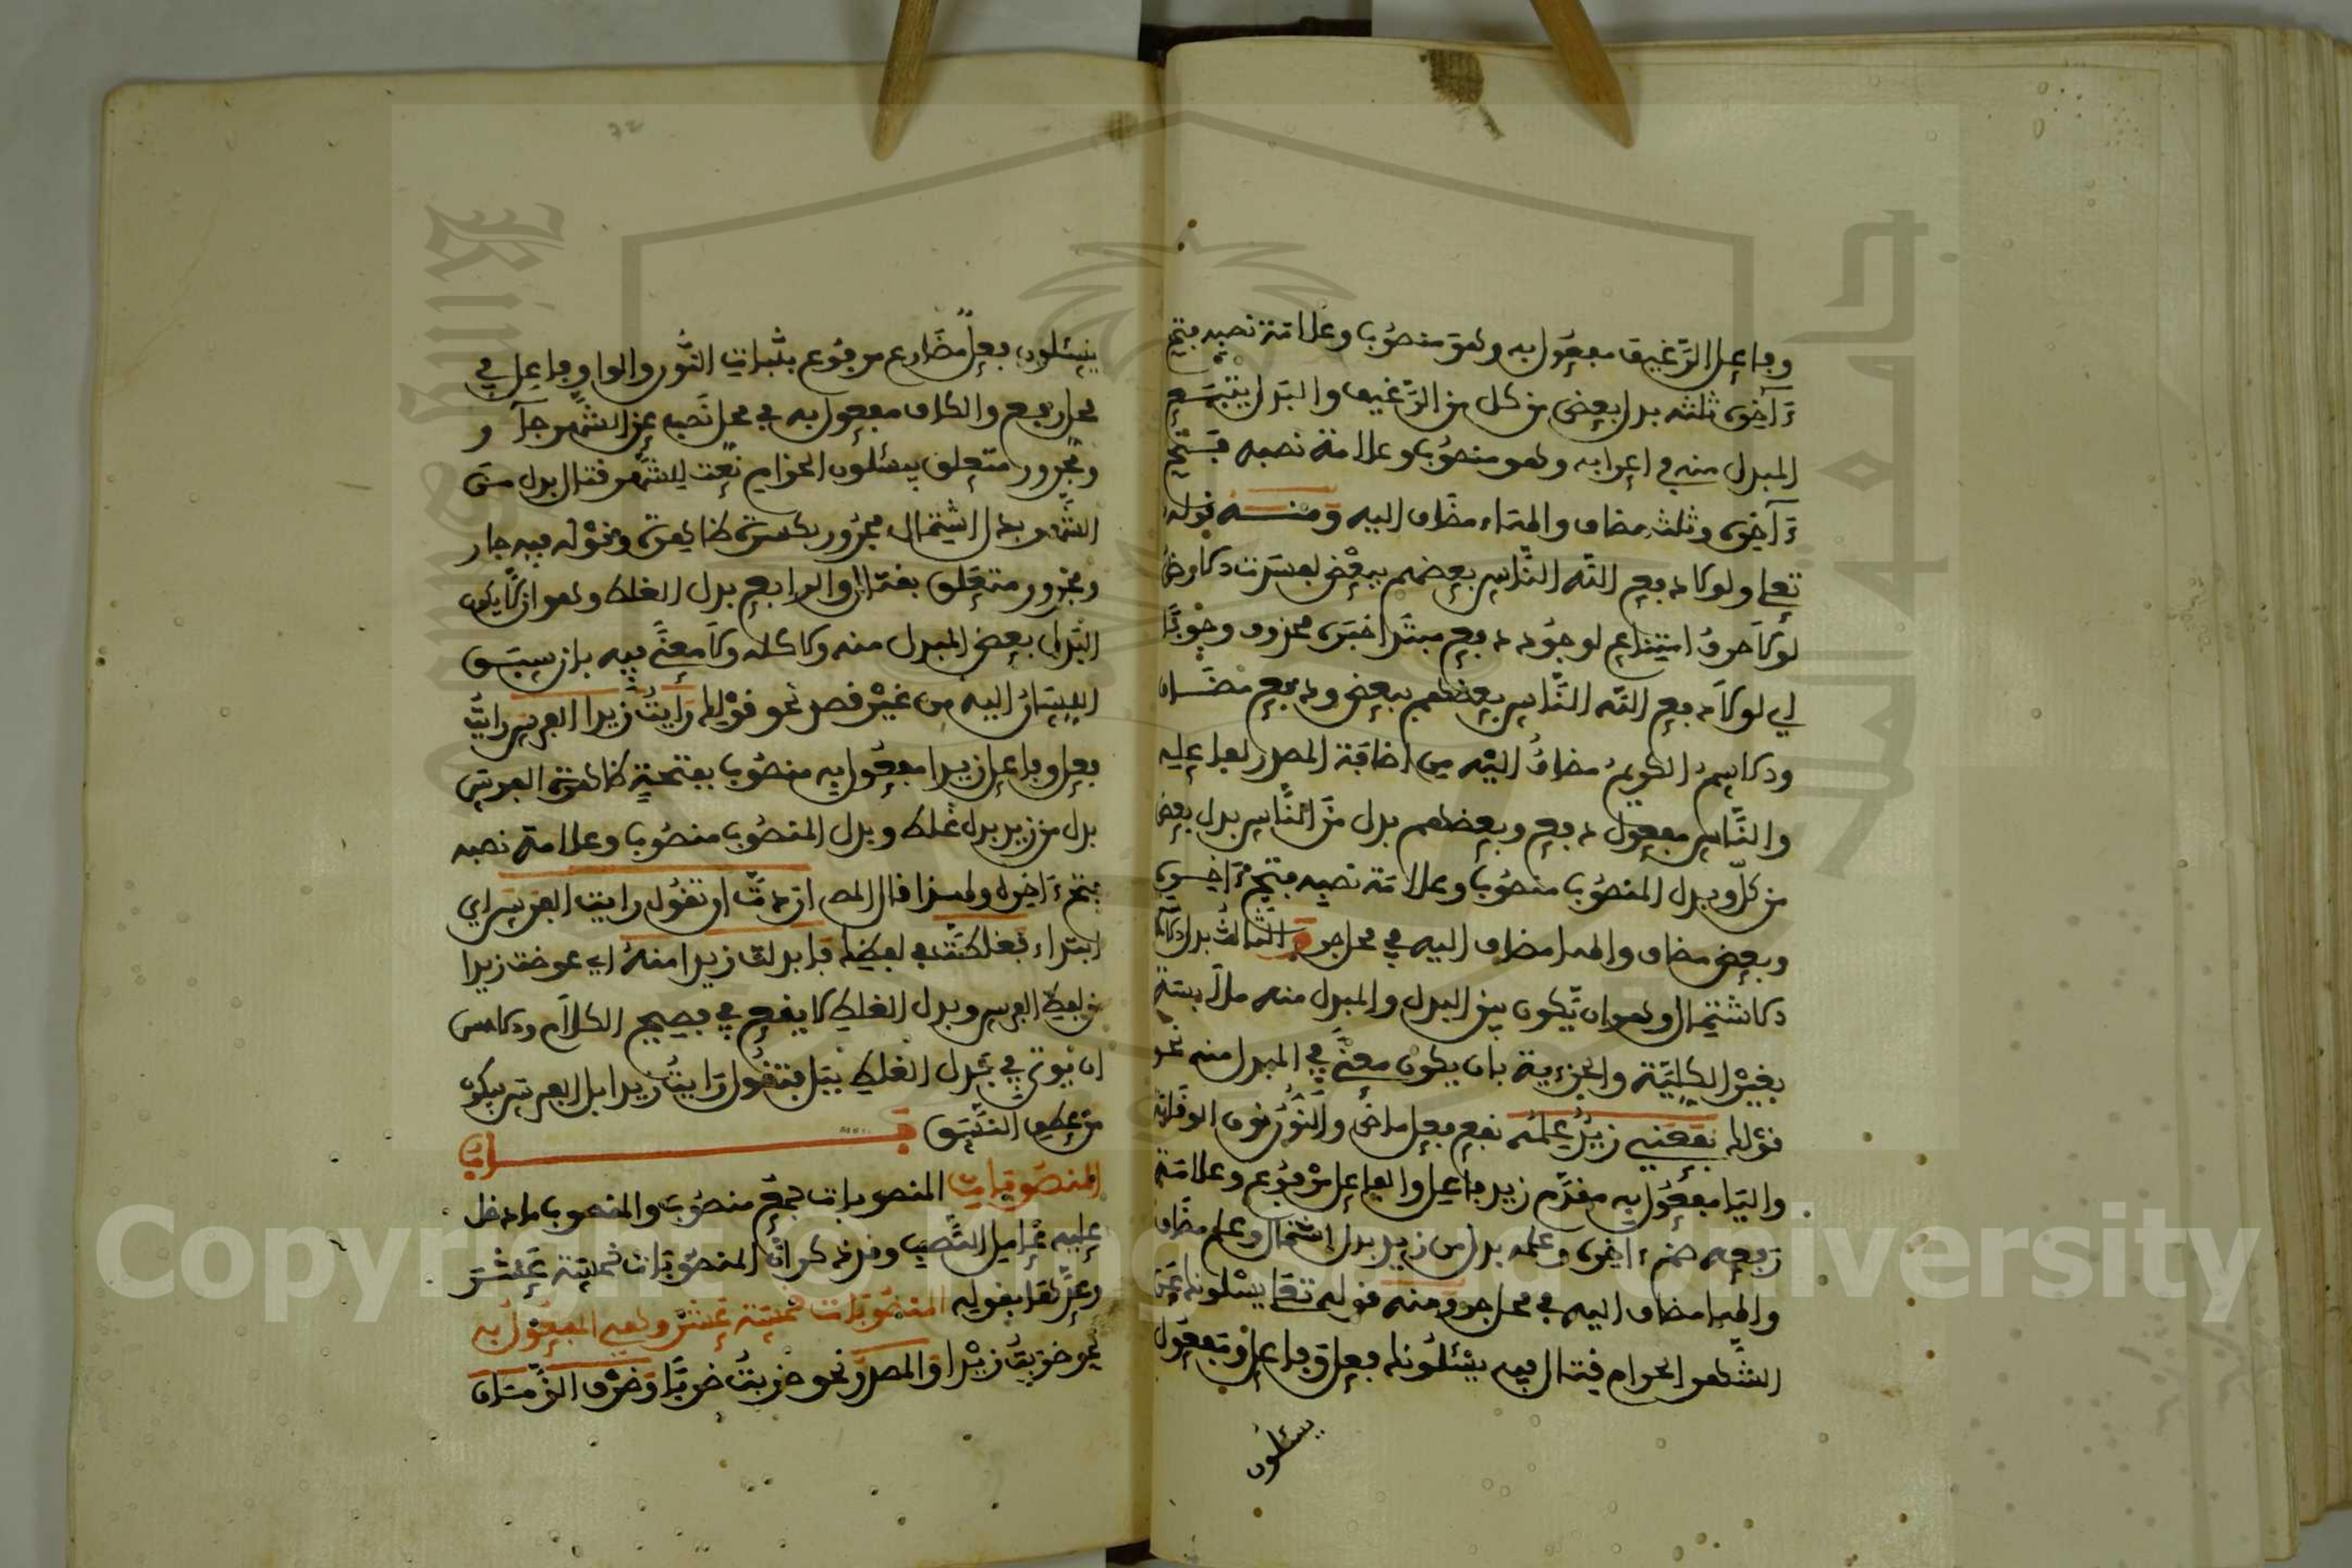 وفاعل الرغيف مفعول به وهو منصوب وعلامة نصبه فتح
ءاخره ثلثه بدل بعض من كل من الرغيف والبدل يتبع
المبدل منه في اعرابه وهو منصوب وعلامة نصبه فتح
ءاخره وثلث مضاف والهاء مضاف اليه ومنه قوله
تعلى ولولا دفع الله الناس بعضهم ببعض لفسدت الارض
لولا حرف امتناع لوجود دفع مبتدا خبره محذوف وجوبا
اي لولا دفع الله الناس بعضهم ببعض ودفع مضاف
والاسم الكريم مضاف اليه من اضافة المصدر لفاعله
والناس مفعول دفع وبعضهم بدل من الناس بدل بعض
من كل وبدل المنصوب منصوب وعلامة نصبه فتح ءاخره
وبعض مضاف والهاء مضاف اليه في محل جر والثالث بدل
الاشتمال وهو ان يكون بين البدل والمبدل منه ملابسة
بغير الكلية والجزءية بان يكون معنى في المبدل منه نحو
قولك نفعني زيد علمه نفع فعل ماض والنون نون الوقاية
واليا مفعول به مقدم زيد فاعل والفاعل مرفوع وعلامة
رفعه ضم ءاخره وعلمه بدل من زيد بدل اشتمال وعلم مضاف
والهاء مضاف اليه في محل جر ومنه قوله تعلى يسئلونك عن
الشهر الحرام قتال فيه يسئلونك فعل وفاعل ومفعول
يسئلون
72
يسئلون فعل مضارع مرفوع بثبات النون والواو فاعل في
محل رفع والكاف مفعول به في محل نصب عن الشهر جار و
ومجرور متعلق بيسئلون الحرام نعت للشهر قتال بدل من
الشهر بدل اشتمال مجرور بكسرة ظاهرة وقوله فيه جار
ومجرور متعلق بقتال والرابع بدل الغلط وهو ان لا يكون
البدل بعض المبدل منه ولا كله ولا معنى فيه بان سبق
اللسان اليه من غير قصد نحو قولك رايت زيدا الفرس رايت
فعل وفاعل زيدا مفعول به منصوب بفتحة ظاهرة الفرس
بدل من زيد بدل غلط وبدل المنصوب منصوب وعلامة نصبه
فتح ءاخره ولهذا قال المص اردت ان تقول رايت الفرس اي
ابتداء فغلطت في لفظك فابدلت زيدا منه اي عوضت زيدا
من لفظ الفرس وبدل الغلط لا يقع في فصيح الكلام والاحسن
ان يوتى في بدل الغلط ببل فتقول رايت زيدا بل الفرس فيكون
من عطف النسق باب
المنصوبات المنصوبات جمع منصوب والمنصوب ما دخل
عليه عامل النصب وقد ذكر ان المنصوبات خمسة عشر
وعدها بقوله المنصوبات خمسة عشر وهي المفعول به
نحو ضربت زيدا والمصدر نحو ضربت ضربا وظرف الزمان
Copyright © King Saud University